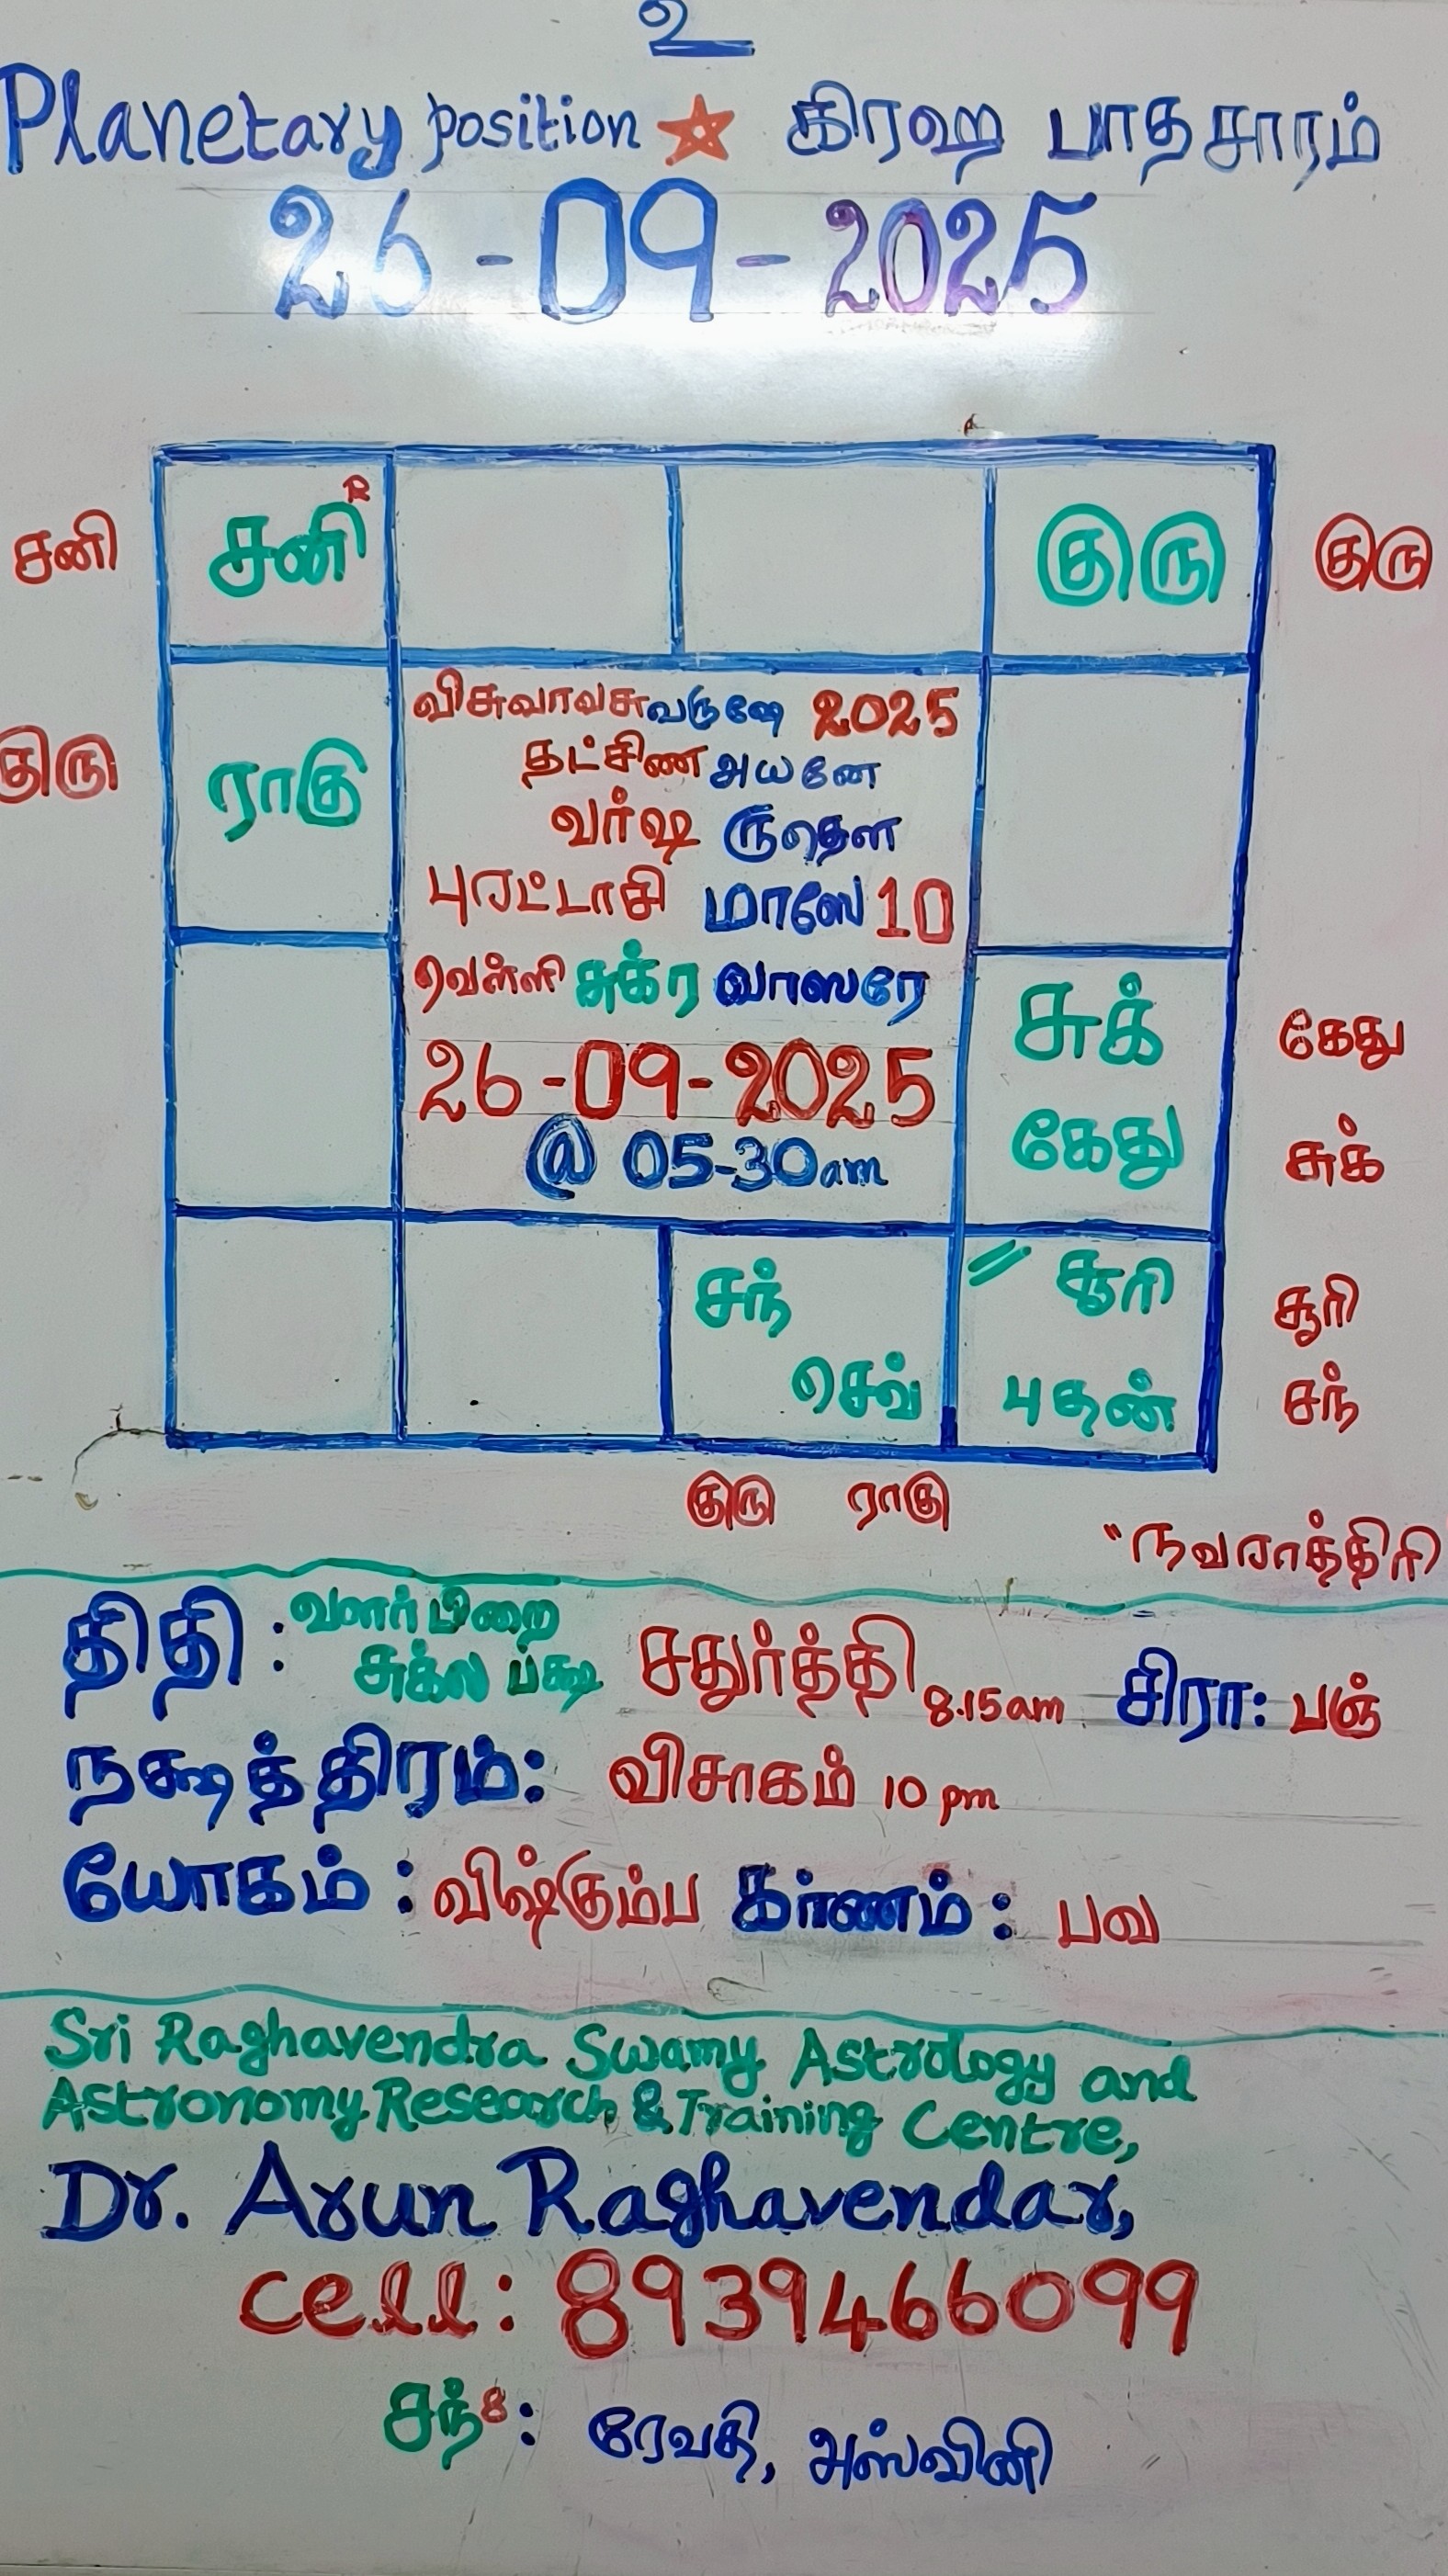 உ
Planetary position கிரஹ பாதசாரம்
26-09-2025
சனி சனி R குரு குரு
விசுவாவசுவருஷே 2025
தட்சிண அயனே
குரு ராகு வர்ஷ ருதௌ
புரட்டாசி மாஸே 10
வெள்ளி சுக்ர வாஸரே
சுக் கேது
26-09-2025
கேது சுக்
@ 05-30am
சந் " சூரி சூரி
செவ் புதன் சந்
குரு ராகு
"நவராத்திரி
திதி : வளர்பிறை
சுக்ல பக்ஷ சதுர்த்தி 8.15am சிரா: பஞ்
நக்ஷத்திரம்: விசாகம் 10 pm
யோகம் : விஷ்கும்ப கர்ணம் : பவ
Sri Raghavendra Swamy Astrology and
Astronomy Research & Training Centre,
Dr. Arun Raghavendar,
cell: 8939466099
சந்8: ரேவதி, அஸ்வினி